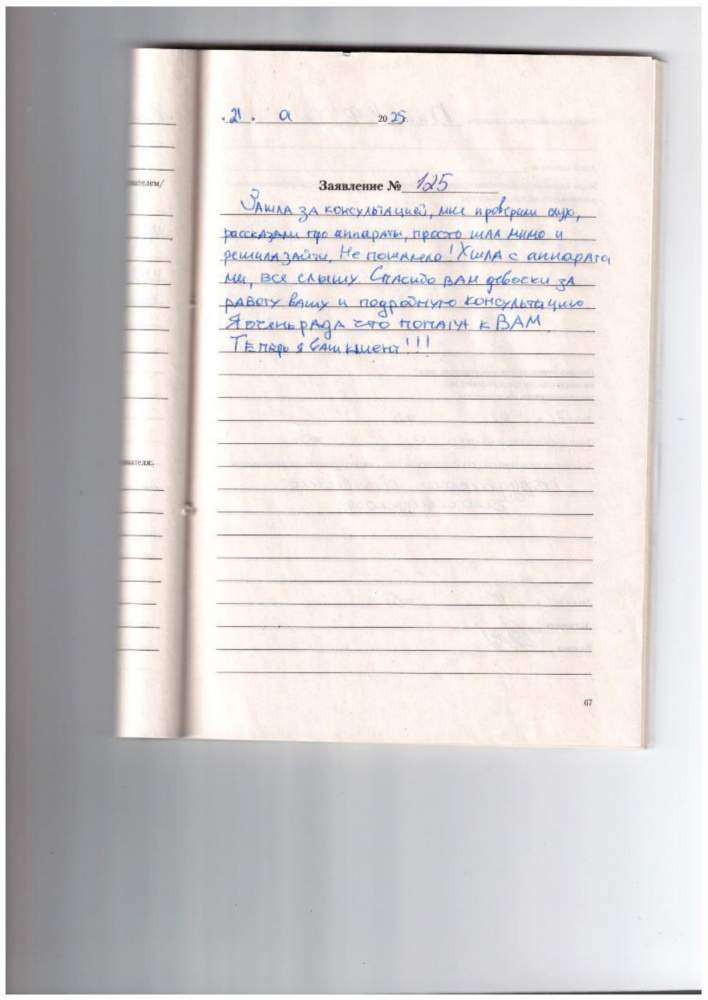 « 21 » а 2025.
вателем/
Заявление № 125
Зашла за консультацией, мне проверили слух,
рассказали про аппараты, просто шла мимо и
решила зайти. Не пожалела! Ушла с аппарата
ми, все слышу. Спасибо вам девочки за
работу вашу и подробную консультацию
Я очень рада что попала к ВАМ.
Теперь я ваш клиент!!!
вателя:
67